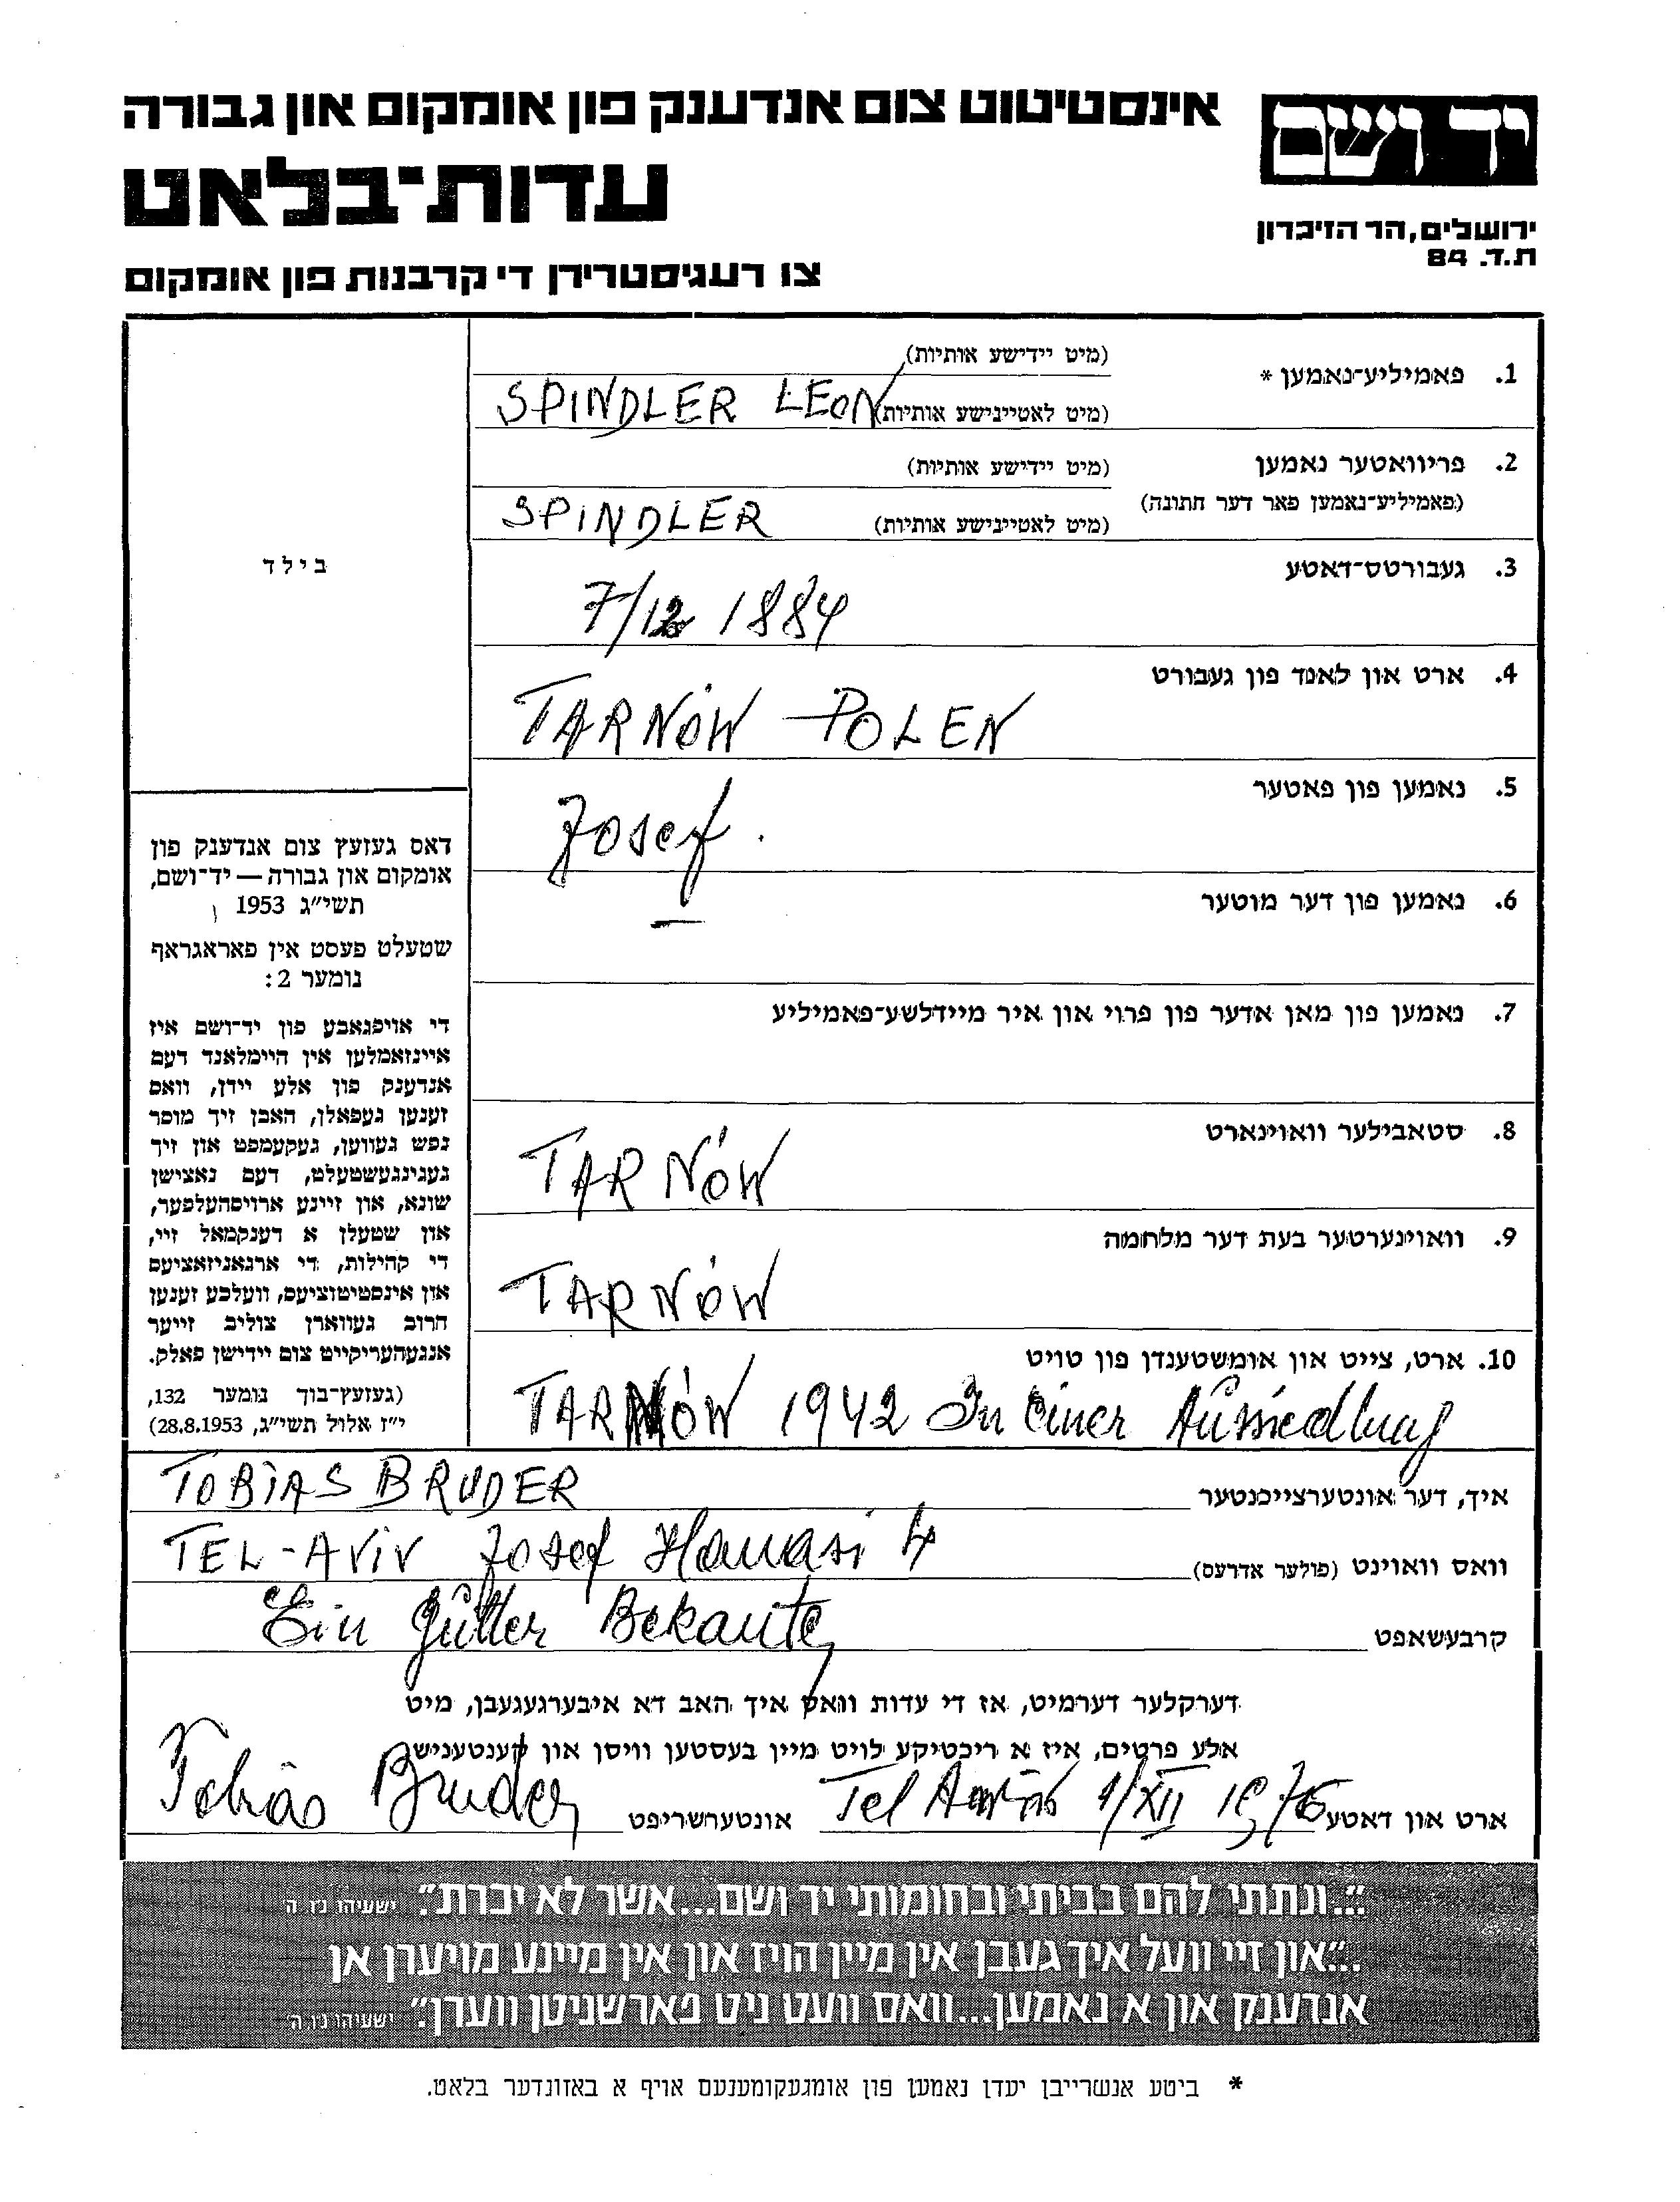 אינסטיטוט צום אנדענק פון אומקום און גבורה
יד ושם
עדות-בלאט
ירושלים, הר הזיכרון
ת.ד. 84
צו רעגיסטרירן די קרבנות פון אומקום
1. פאמיליע-נאמען *
(מיט יידישע אותיות)
SPINDLER LEON (מיט לאטיינישע אותיות)
2. פריוואטער נאמען
(מיט יידישע אותיות)
(פאמיליע-נאמען פאר דער חתונה)
SPINDLER (מיט לאטיינישע אותיות)
בילד
3. געבורטס-דאטע
7/12 1884
4. ארט און לאנד פון געבורט
TARNÓW POLEN
5. נאמען פון פאטער
Josef.
6. נאמען פון דער מוטער
—
7. נאמען פון מאן אדער פון פרוי און איר מיידלשע-פאמיליע
8. סטאבילער וואוינארט
TARNÓW
9. וואוינערטער בעת דער מלחמה
TARNÓW
10. ארט, צייט און אומשטענדן פון טויט
TARNÓW 1942 In einer Aussiedlung
דאס געזעץ צום אנדענק פון
אומקום און גבורה — יד-ושם,
תשי"ג 1953
שטעלט פעסט אין פאראגראף
נומער 2:
די אויפגאבע פון יד-ושם איז
איינזאמלען אין היימלאנד דעם
אנדענק פון אלע יידן, וואס
זענען געפאלן, האבן זיך מוסר
נפש געווען, געקעמפט און זיך
געגינגעשטעלט, דעם נאצישן
שונא, און זיינע ארויסהעלפער,
און שטעלן א דענקמאל זיי,
די קהילות, די ארגאניזאציעס
און אינסטיטוציעס, וועלכע זענען
חרוב געווארן צוליב זייער
אנגעהעריקייט צום יידישן פאלק.
(געזעץ-בוך נומער 132,
י"ז אלול תשי"ג, 28.8.1953)
איך, דער אונטערצייכנטער TOBIAS BRUDER
וואס וואוינט (פולער אדרעס) TEL-AVIV Josef Hanasi 4
קרבעשאפט Ein gutter Bekante
דערקלער דערמיט, אז די עדות וואס איך האב דא איבערגעגעבן, מיט
אלע פרטים, איז א ריכטיקע לויט מיין בעסטען וויסן און קענטעניש
ארט און דאטע Tel Aviv 1/XII 1976 אונטערשריפט Tobias Bruder
"...ונתתי להם בביתי ובחומותי יד ושם...אשר לא יכרת". ישעיהו נ"ו ה'
"...און זיי וועל איך געבן אין מיין הויז און אין מיינע מויערן אן
אנדענק און א נאמען...וואס וועט ניט פארשניטן ווערן". ישעיהו נ"ו ה'
* ביטע אנשרייבן יעדן נאמען פון אומגעקומענעם אויף א באזונדער בלאט.